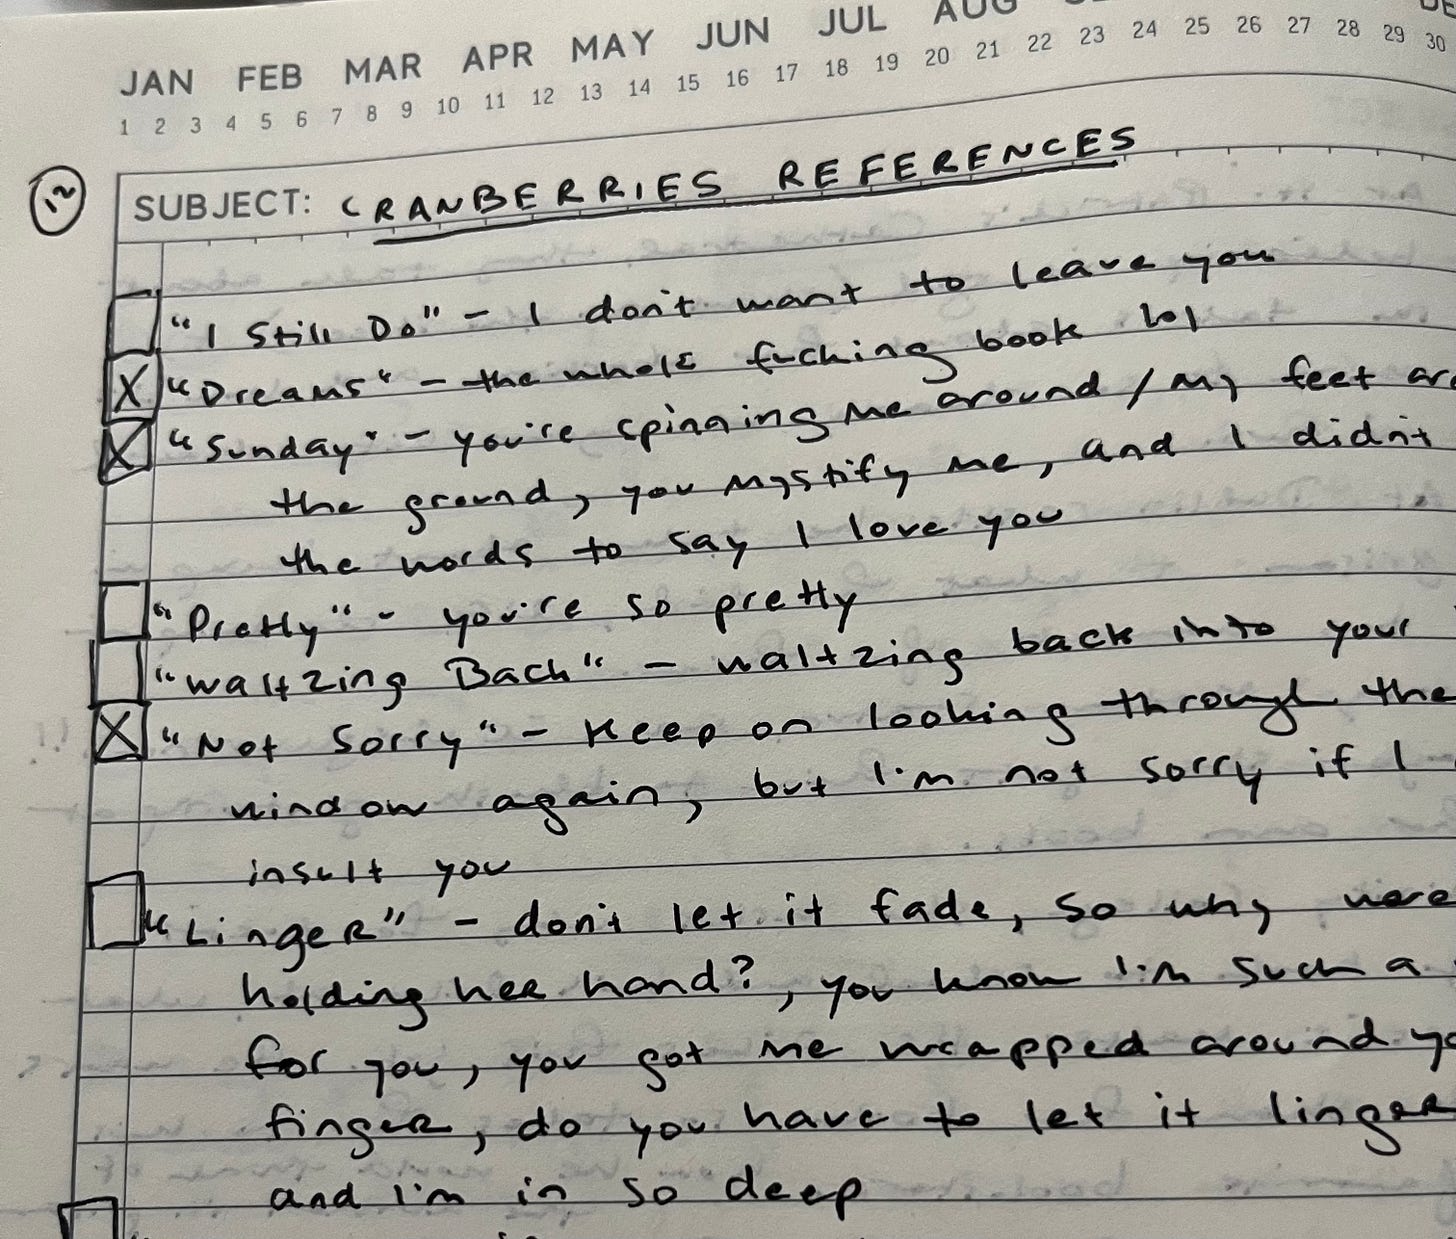 JAN FEB MAR APR MAY JUN JUL AUG
1 2 3 4 5 6 7 8 9 10 11 12 13 14 15 16 17 18 19 20 21 22 23 24 25 26 27 28 29 30
12
SUBJECT: CRANBERRIES REFERENCES
"I Still Do" - I don't want to leave you
X "Dreams" - the whole fucking book lol
X "Sunday" - you're spinning me around / my feet are
the ground, you mystify me, and I didn't
the words to say I love you
"Pretty" - you're so pretty
"Waltzing Back" - waltzing back into your
X "Not Sorry" - Keep on looking through the
window again, but I'm not sorry if I
insult you
"Linger" - don't let it fade, so why were
holding her hand?, you know I'm such a
for you, you got me wrapped around
finger, do you have to let it linger
and I'm in so deep